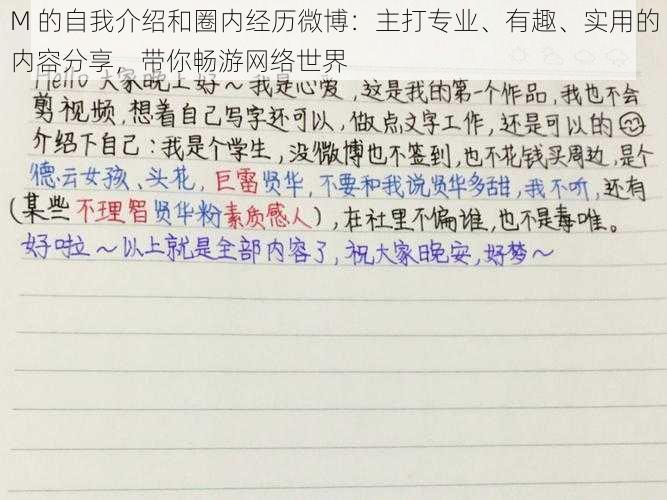 M 的自我介绍和圈内经历微博：主打专业、有趣、实用的
内容分享，带你畅游网络世界
Hello 大家晚上好～我是心爱，这是我的第一个作品，我也不会
剪视频，想着自己写字还可以，做点文字工作，还是可以的
介绍下自己：我是个学生，没微博也不签到，也不花钱买周边，是个
德云女孩、头花，巨雷贤华，不要和我说贤华多甜，我不听，还有
（某些不理智贤华粉素质感人），在社里不偏谁，也不是毒唯。
好啦～以上就是全部内容了，祝大家晚安，好梦～